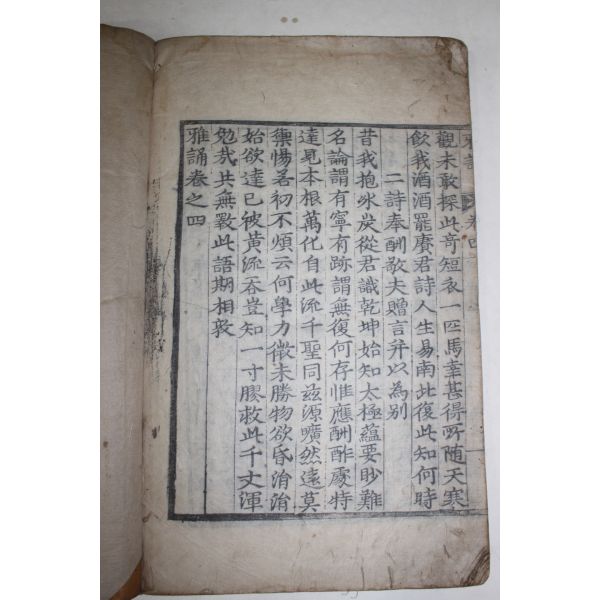 雅誦 卷四
觀未敢探此奇短衣一匹馬幸甚得所隨天寒
飲我酒酒罷賡君詩人生易南北復此知何時
二詩奉酬敬夫贈言幷以為别
昔我抱冰炭從君識乾坤始知太極蘊要眇難
名論謂有寧有跡謂無復何存惟應酬酢處特
達見本根萬化自此流千聖同茲源曠然遠莫
禦惕若初不煩云何學力微未勝物欲昏涓涓
始欲達已被黃流吞豈知一寸膠救此千丈渾
勉哉共無斁此語期相敦
雅誦卷之四